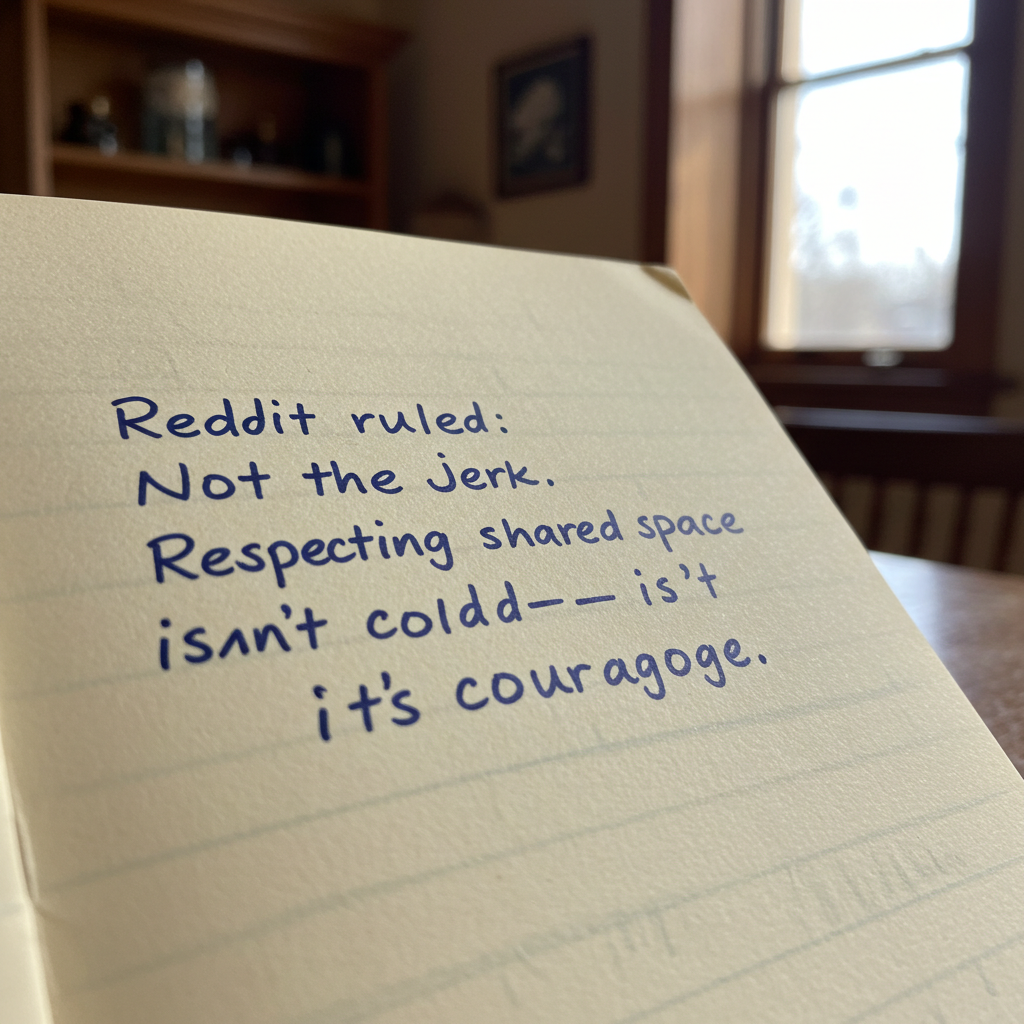 Reddit ruled:
Not the jerk.
Respecting shared space
isnn't coldd—— is't
it's couragoge.